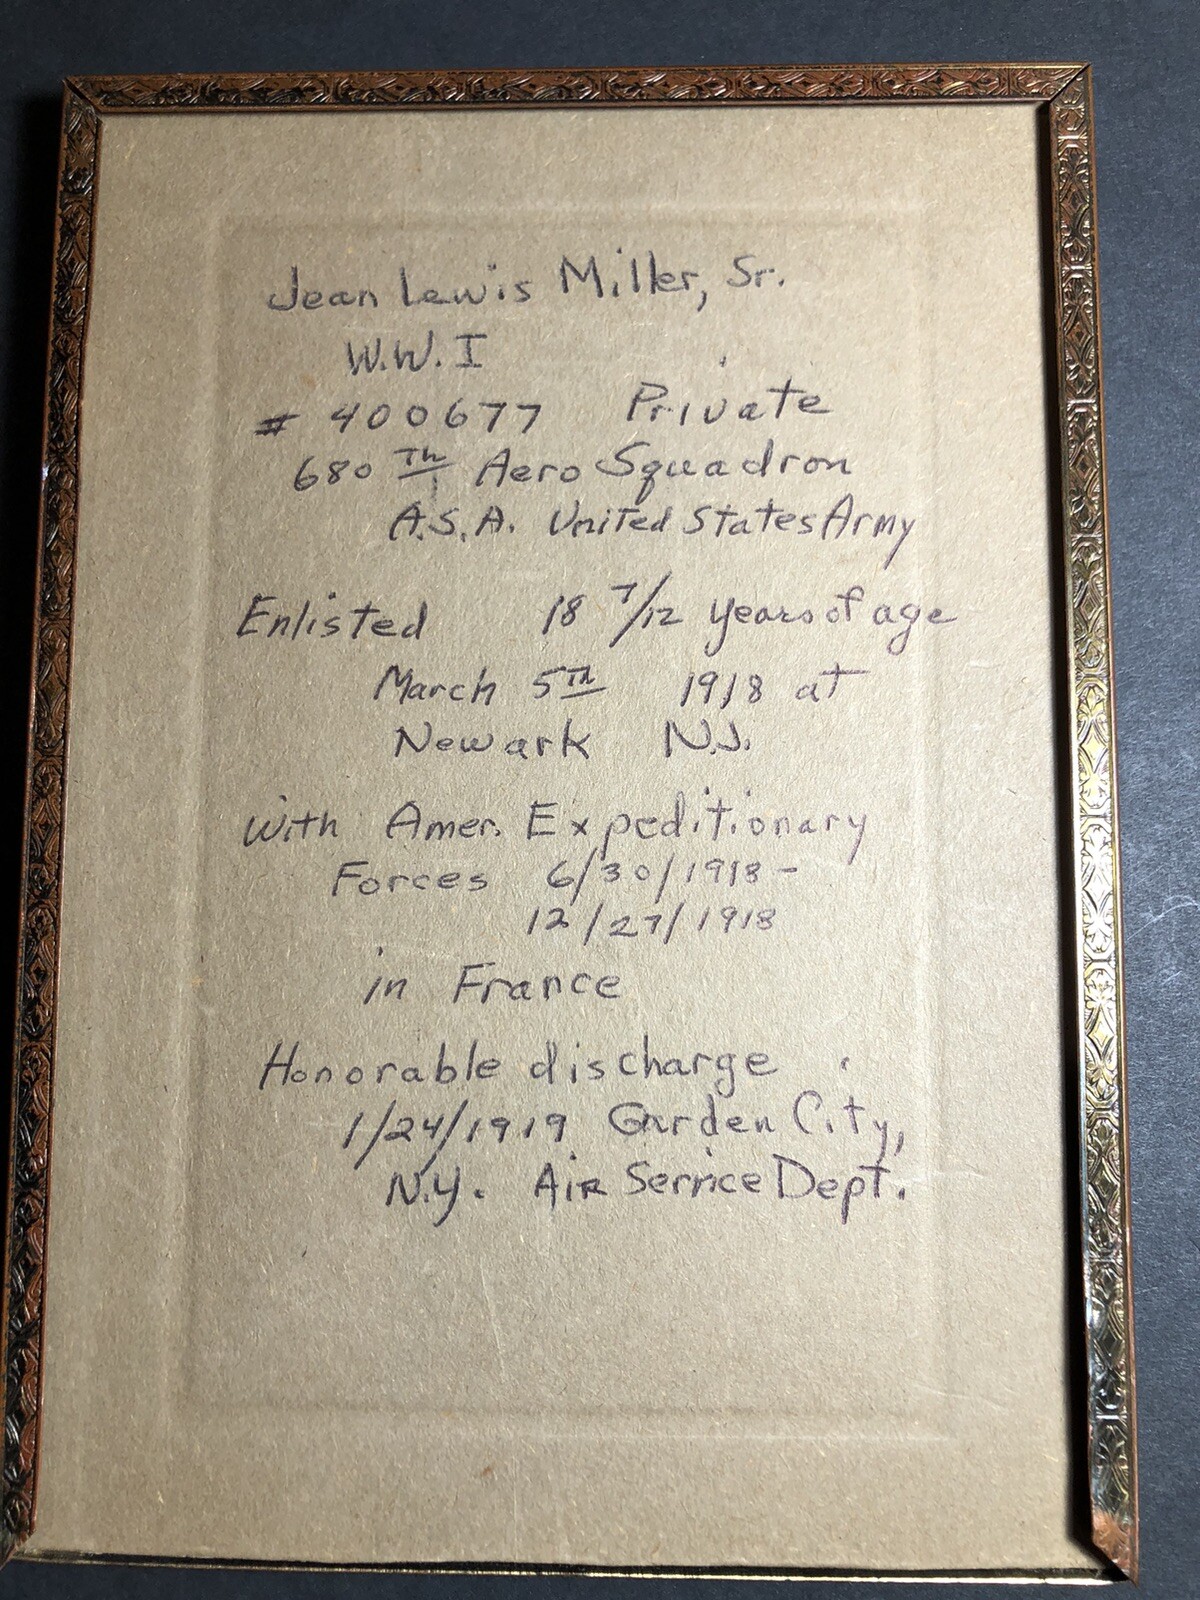 Jean Lewis Miller, Sr.
W.W. I
# 400677 Private
680 Th Aero Squadron
A.S.A. United States Army
Enlisted 18 7/12 years of age
March 5Th 1918 at
Newark N.J.
with Amer. Expeditionary
Forces 6/30/1918 -
12/27/1918
in France
Honorable discharge
1/24/1919 Garden City,
N.Y. Air Service Dept.